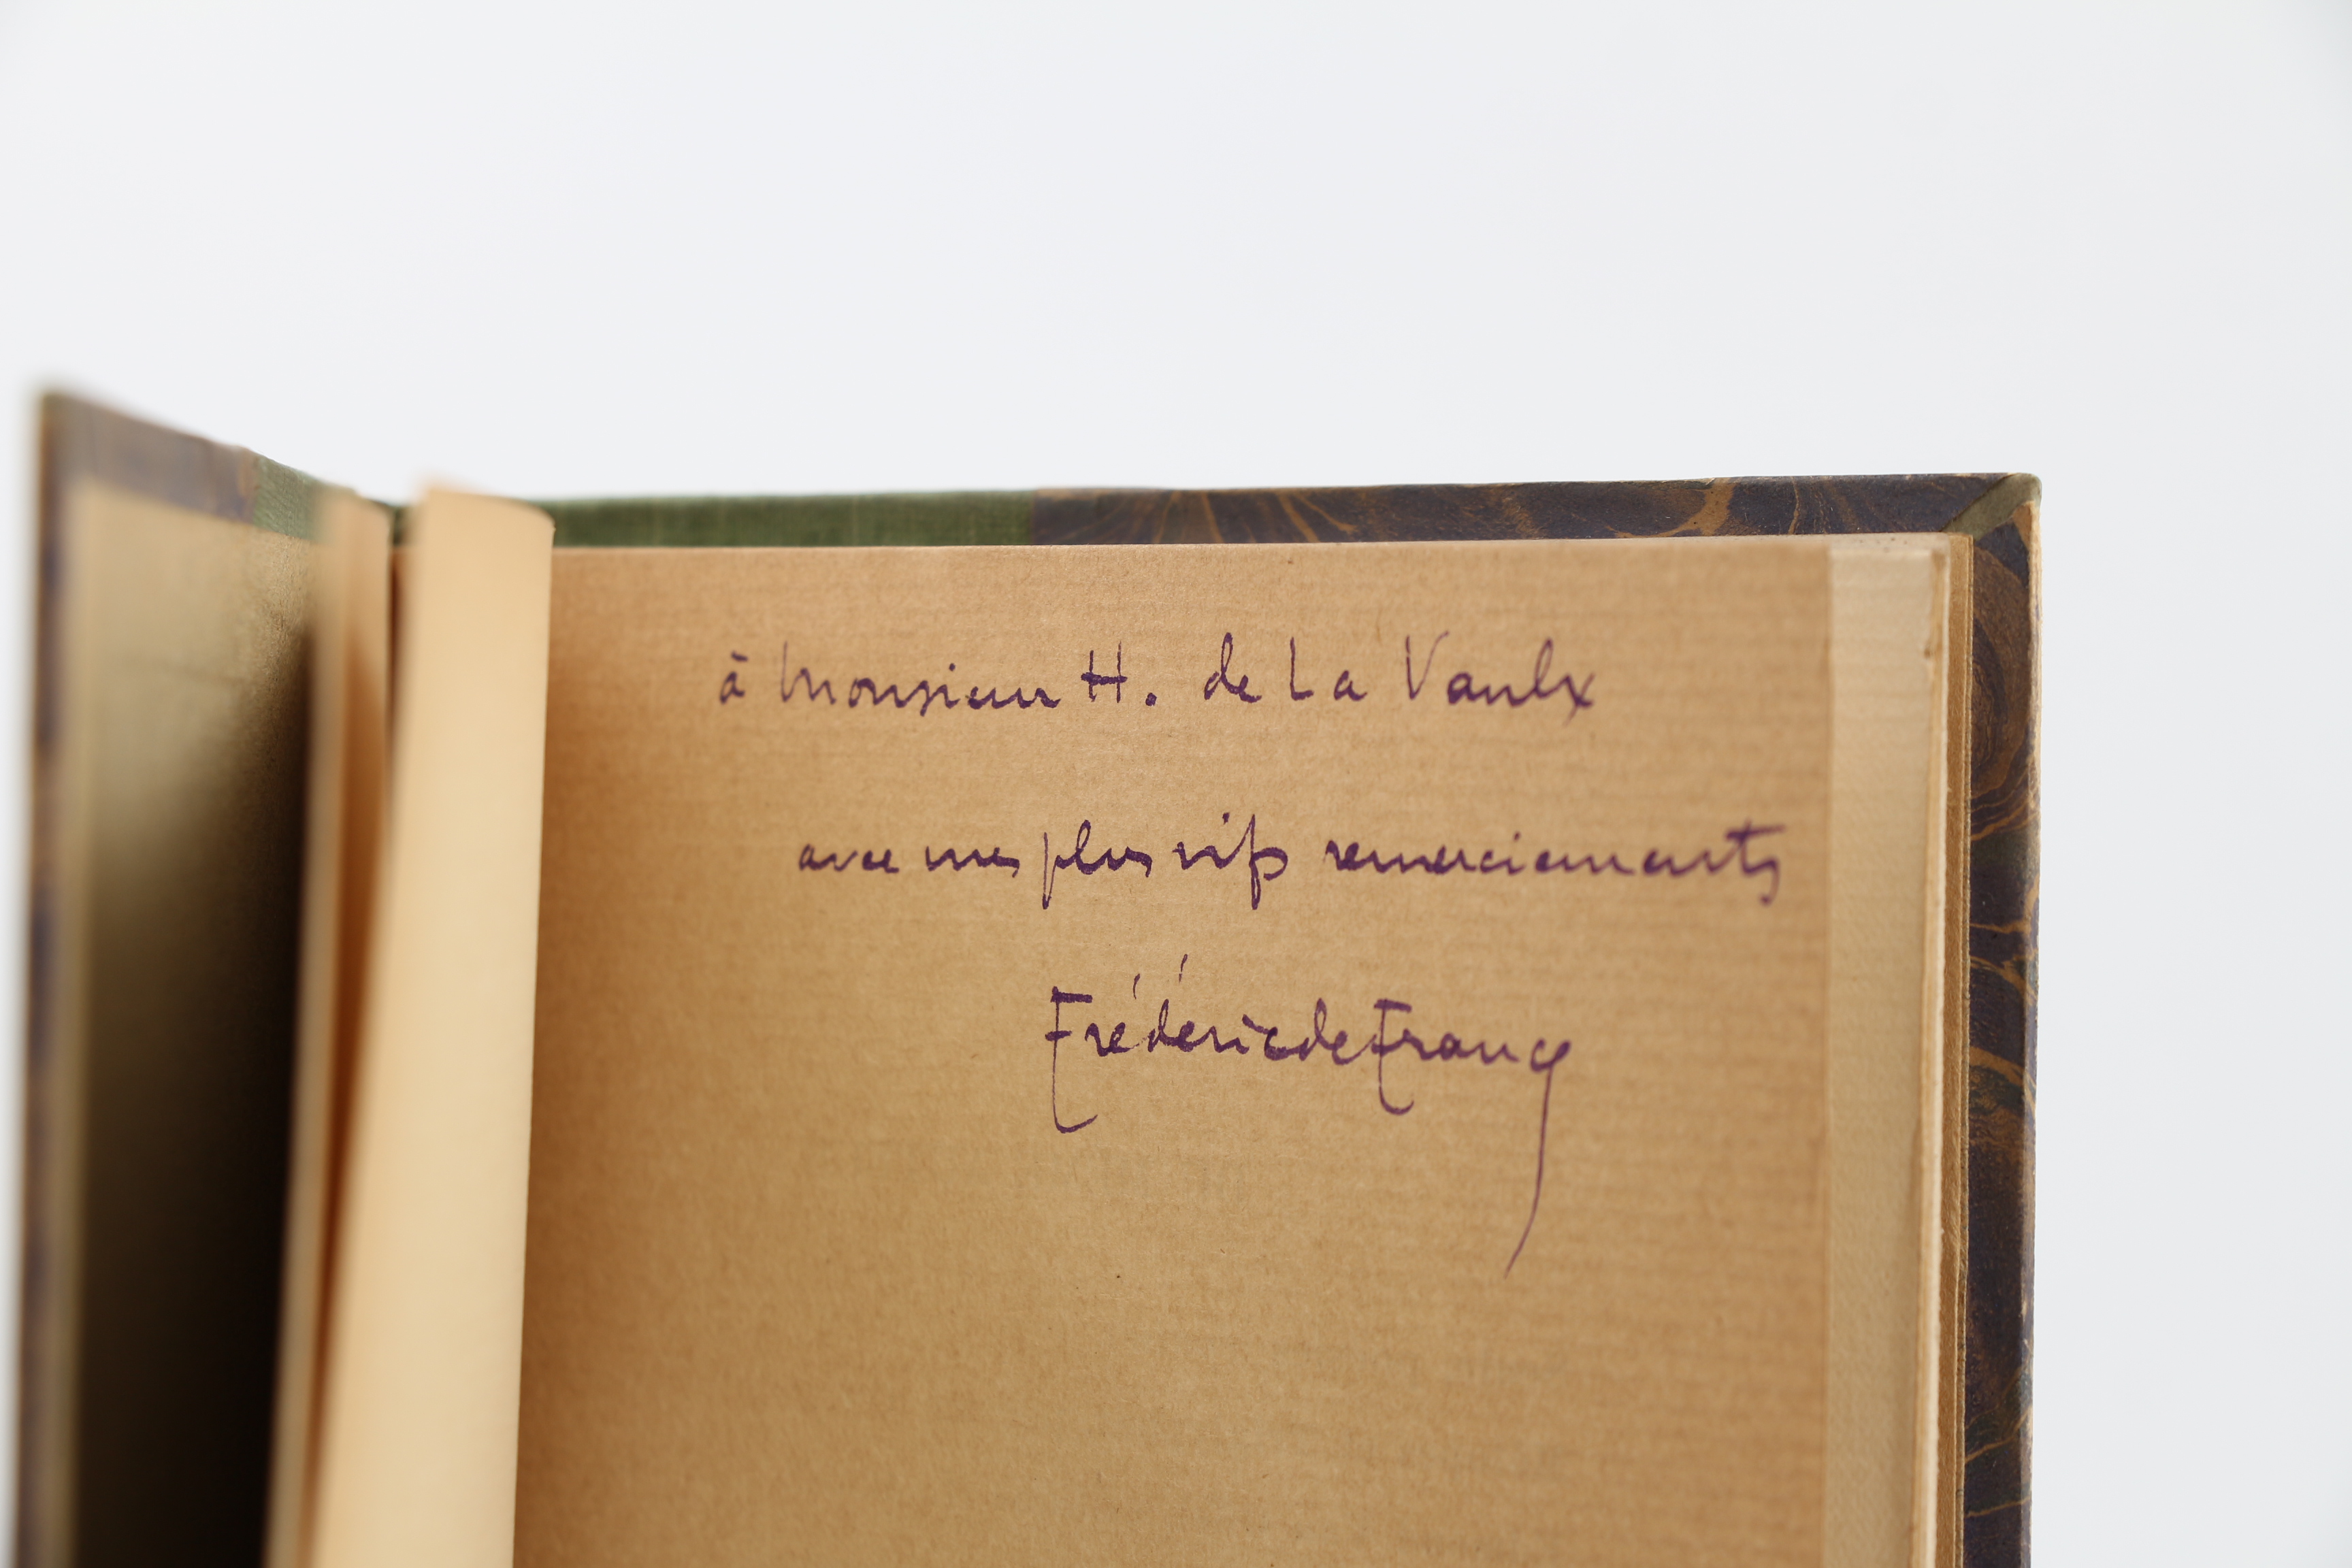 à Monsieur H. de La Vaulx
avec mes plus vifs remerciements
Frédéric de France